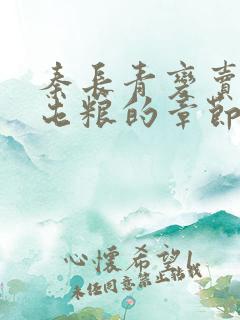 秦長青變賣
屯粮的章節
心懷希望l
未经同意禁止轉載